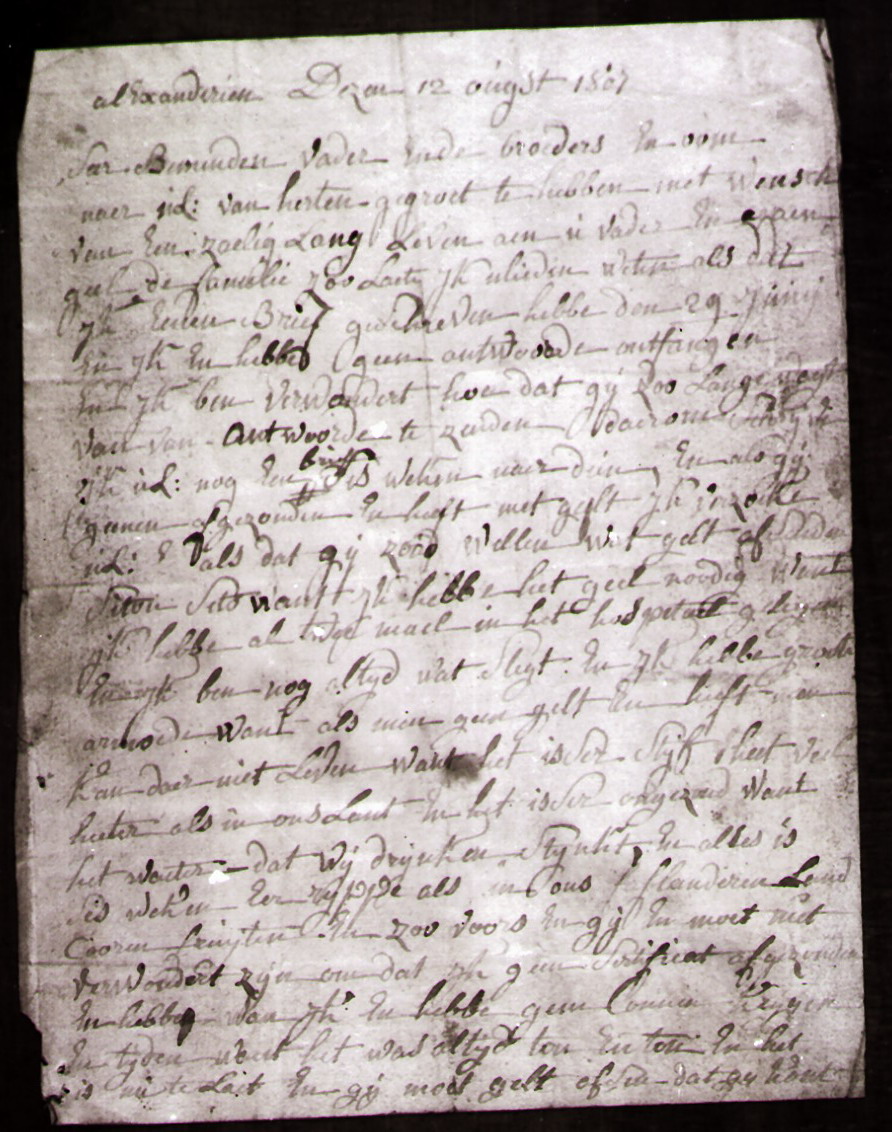 alExanderien Dezen 12 oúgst 1807
Seer Beminden vader Ende broeders En oom
naer úL: van herten gegroet te hebben met Wensch
van Een zaelig Lang Leven aen ú vader En aen
geel de familie zoo Laete yk ulieden weten als dat
yk Eenen Brief geschreven hebbe den 29 Juny
En yk En hebbe geen antWoorde ontfangen
En yk ben verWondert hoe dat gÿ zoo Lange wagt
van van antWoorde te zenden daerom schryve
yk úL: nog Een brief ses weken naer dien En als gÿ
geenen afgezonden En heeft met gelt yk verzoeke
úL: als dat gÿ zoúd Wellen Wat gelt af
Want yk hebbe het geel noodig Want
yk hebbe al twee mael in het hospetael gelegen
En yk ben nog altyd wat slegt En yk hebbe groote
armoede Want als men geen gelt En heeft men
kan daer niet Leven Want het is seer heet veel
heeter als in ons Lant En het is seer ongezond Want
het waeter dat Wÿ drynken stynkt, En alles is
ses weken Eer rÿppe als in ons vlanderen Land
Cooren fruÿten En zoo voors En gÿ En moet niet
verWondert zÿn om dat yk geen Sertificat afgezonden
En hebbe Wan yk En hebbe geen Connen krygen
En tyden want het was altyd ten En ten En het
is nú te Laet En gÿ moet gelt dat gÿ kont